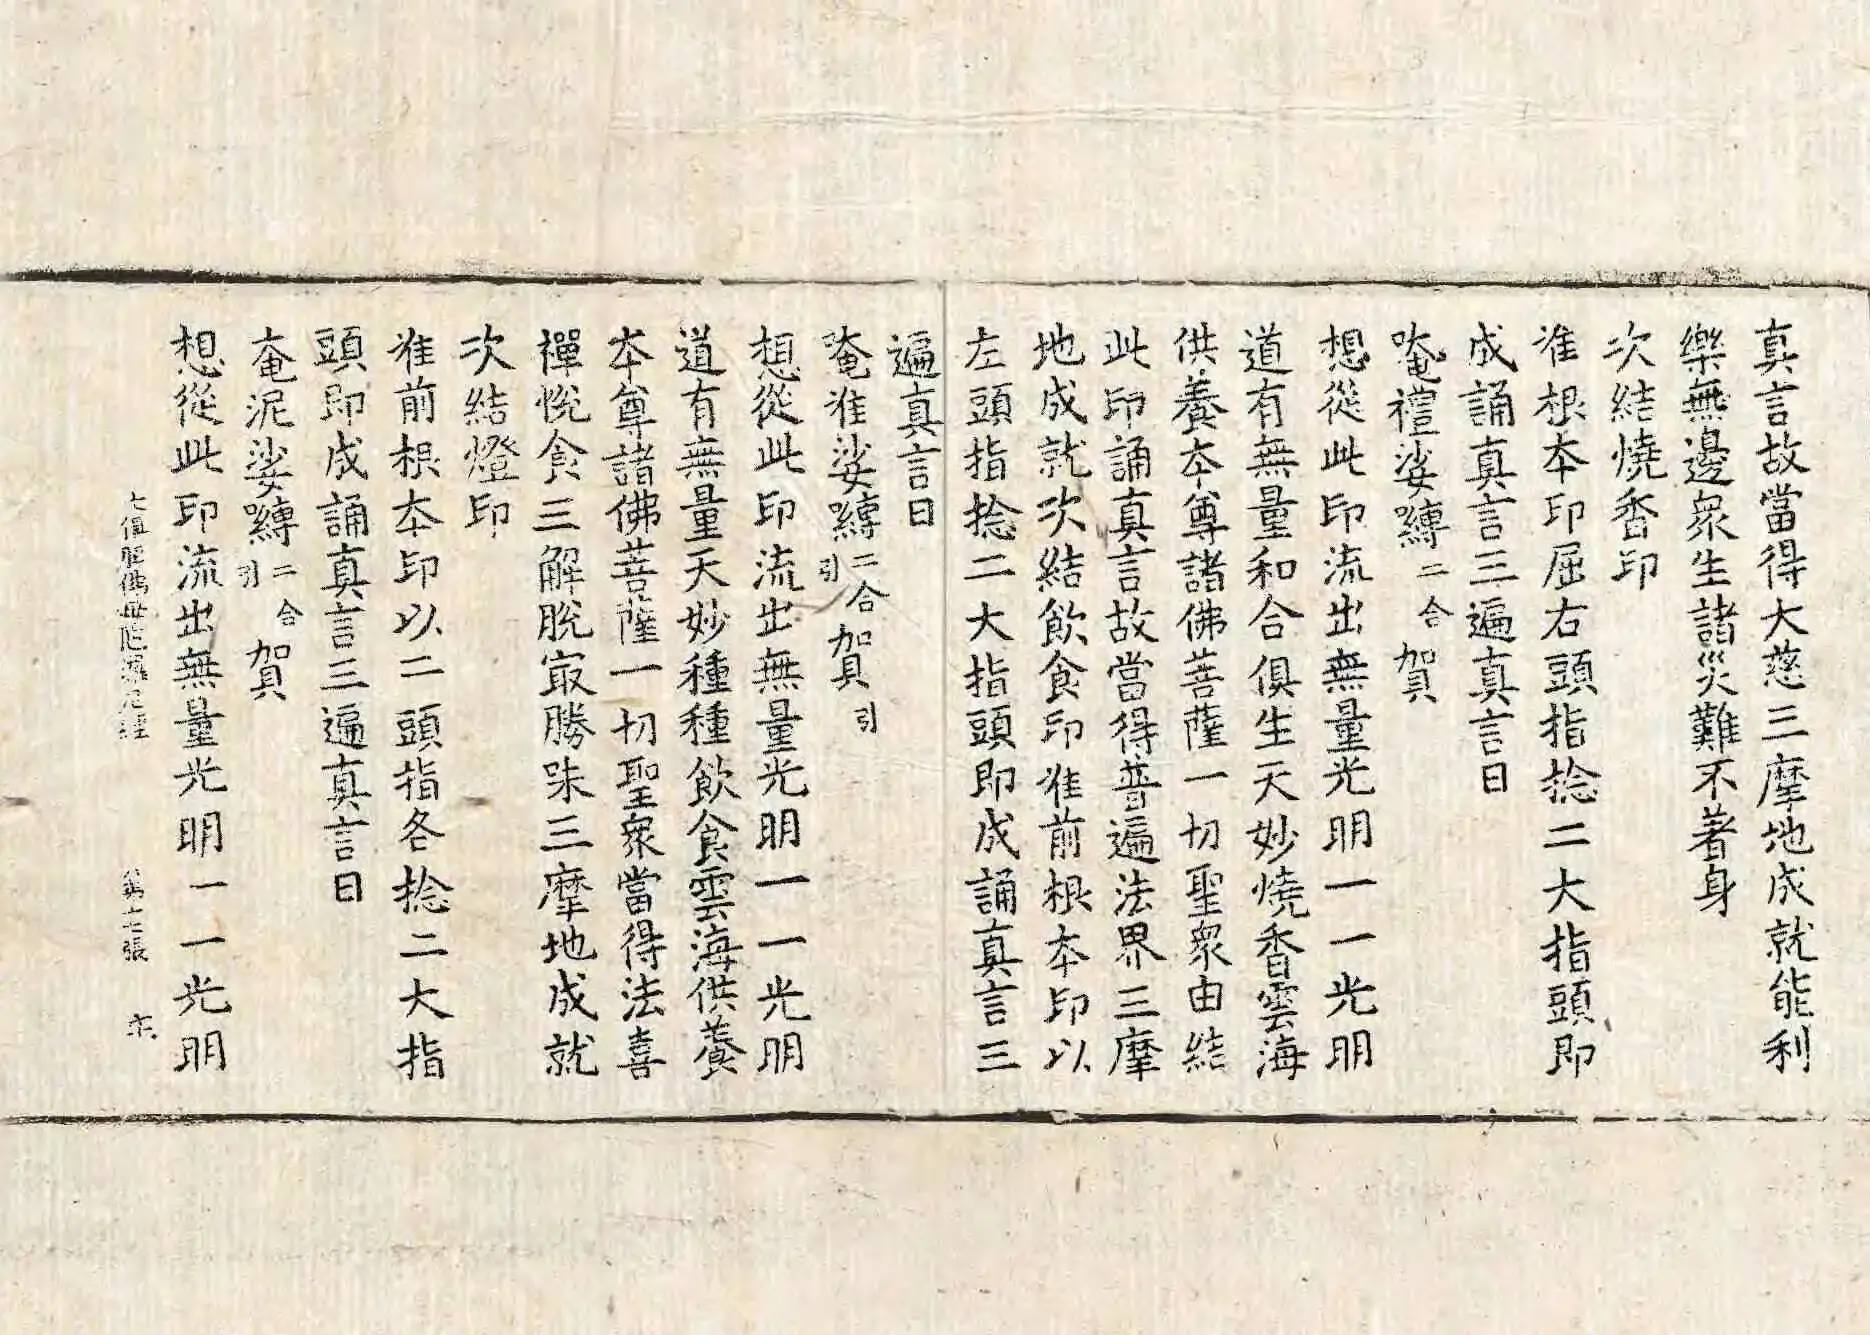 真言故當得大慈三摩地成就能利
樂無邊眾生諸災難不著身
次結燒香印
准根本印屈右頭指捻二大指頭即
成誦真言三遍真言曰
唵禮娑嚩二合賀
想從此印流出無量光明一一光明
道有無量和合俱生天妙燒香雲海
供養本尊諸佛菩薩一切聖眾由結
此印誦真言故當得普遍法界三摩
地成就次結飲食印准前根本印以
左頭指捻二大指頭即成誦真言三
遍真言曰
唵准娑嚩二合引賀引
想從此印流出無量光明一一光明
道有無量天妙種種飲食雲海供養
本尊諸佛菩薩一切聖眾當得法喜
禪悅食三解脫㝡勝味三摩地成就
次結燈印
准前根本印以二頭指各捻二大指
頭即成誦真言三遍真言曰
奄泥娑嚩二合引賀
想從此印流出無量光明一一光明
七俱胝佛母陀羅尼經 第七張